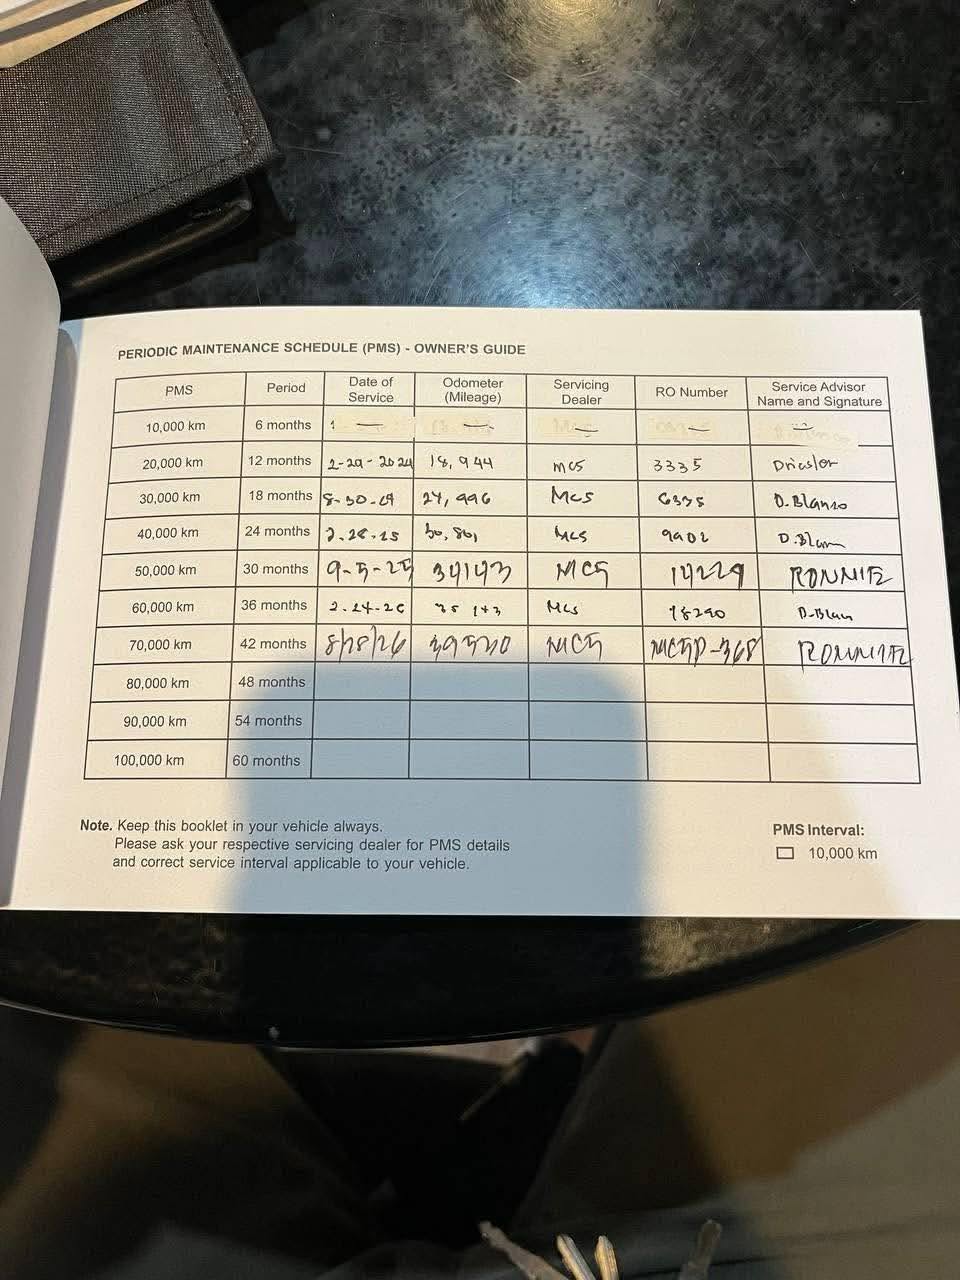 PERIODIC MAINTENANCE SCHEDULE (PMS) - OWNER'S GUIDE
PMS Period Date of Service Odometer (Mileage) Servicing Dealer RO Number Service Advisor Name and Signature
10,000 km 6 months
20,000 km 12 months 2-29-2024 18,944 MCS 3335
30,000 km 18 months 24,996 MCS 6335 D.Blanzo
40,000 km 24 months MCS 9902
50,000 km 30 months 9-5-25 34143 MCS 14229 RONNIE
60,000 km 36 months MCS 18290
70,000 km 42 months 8/28/26 39530 MCS RONNIE
80,000 km 48 months
90,000 km 54 months
100,000 km 60 months
Note. Keep this booklet in your vehicle always.
Please ask your respective servicing dealer for PMS details
and correct service interval applicable to your vehicle.
PMS Interval:
10,000 km